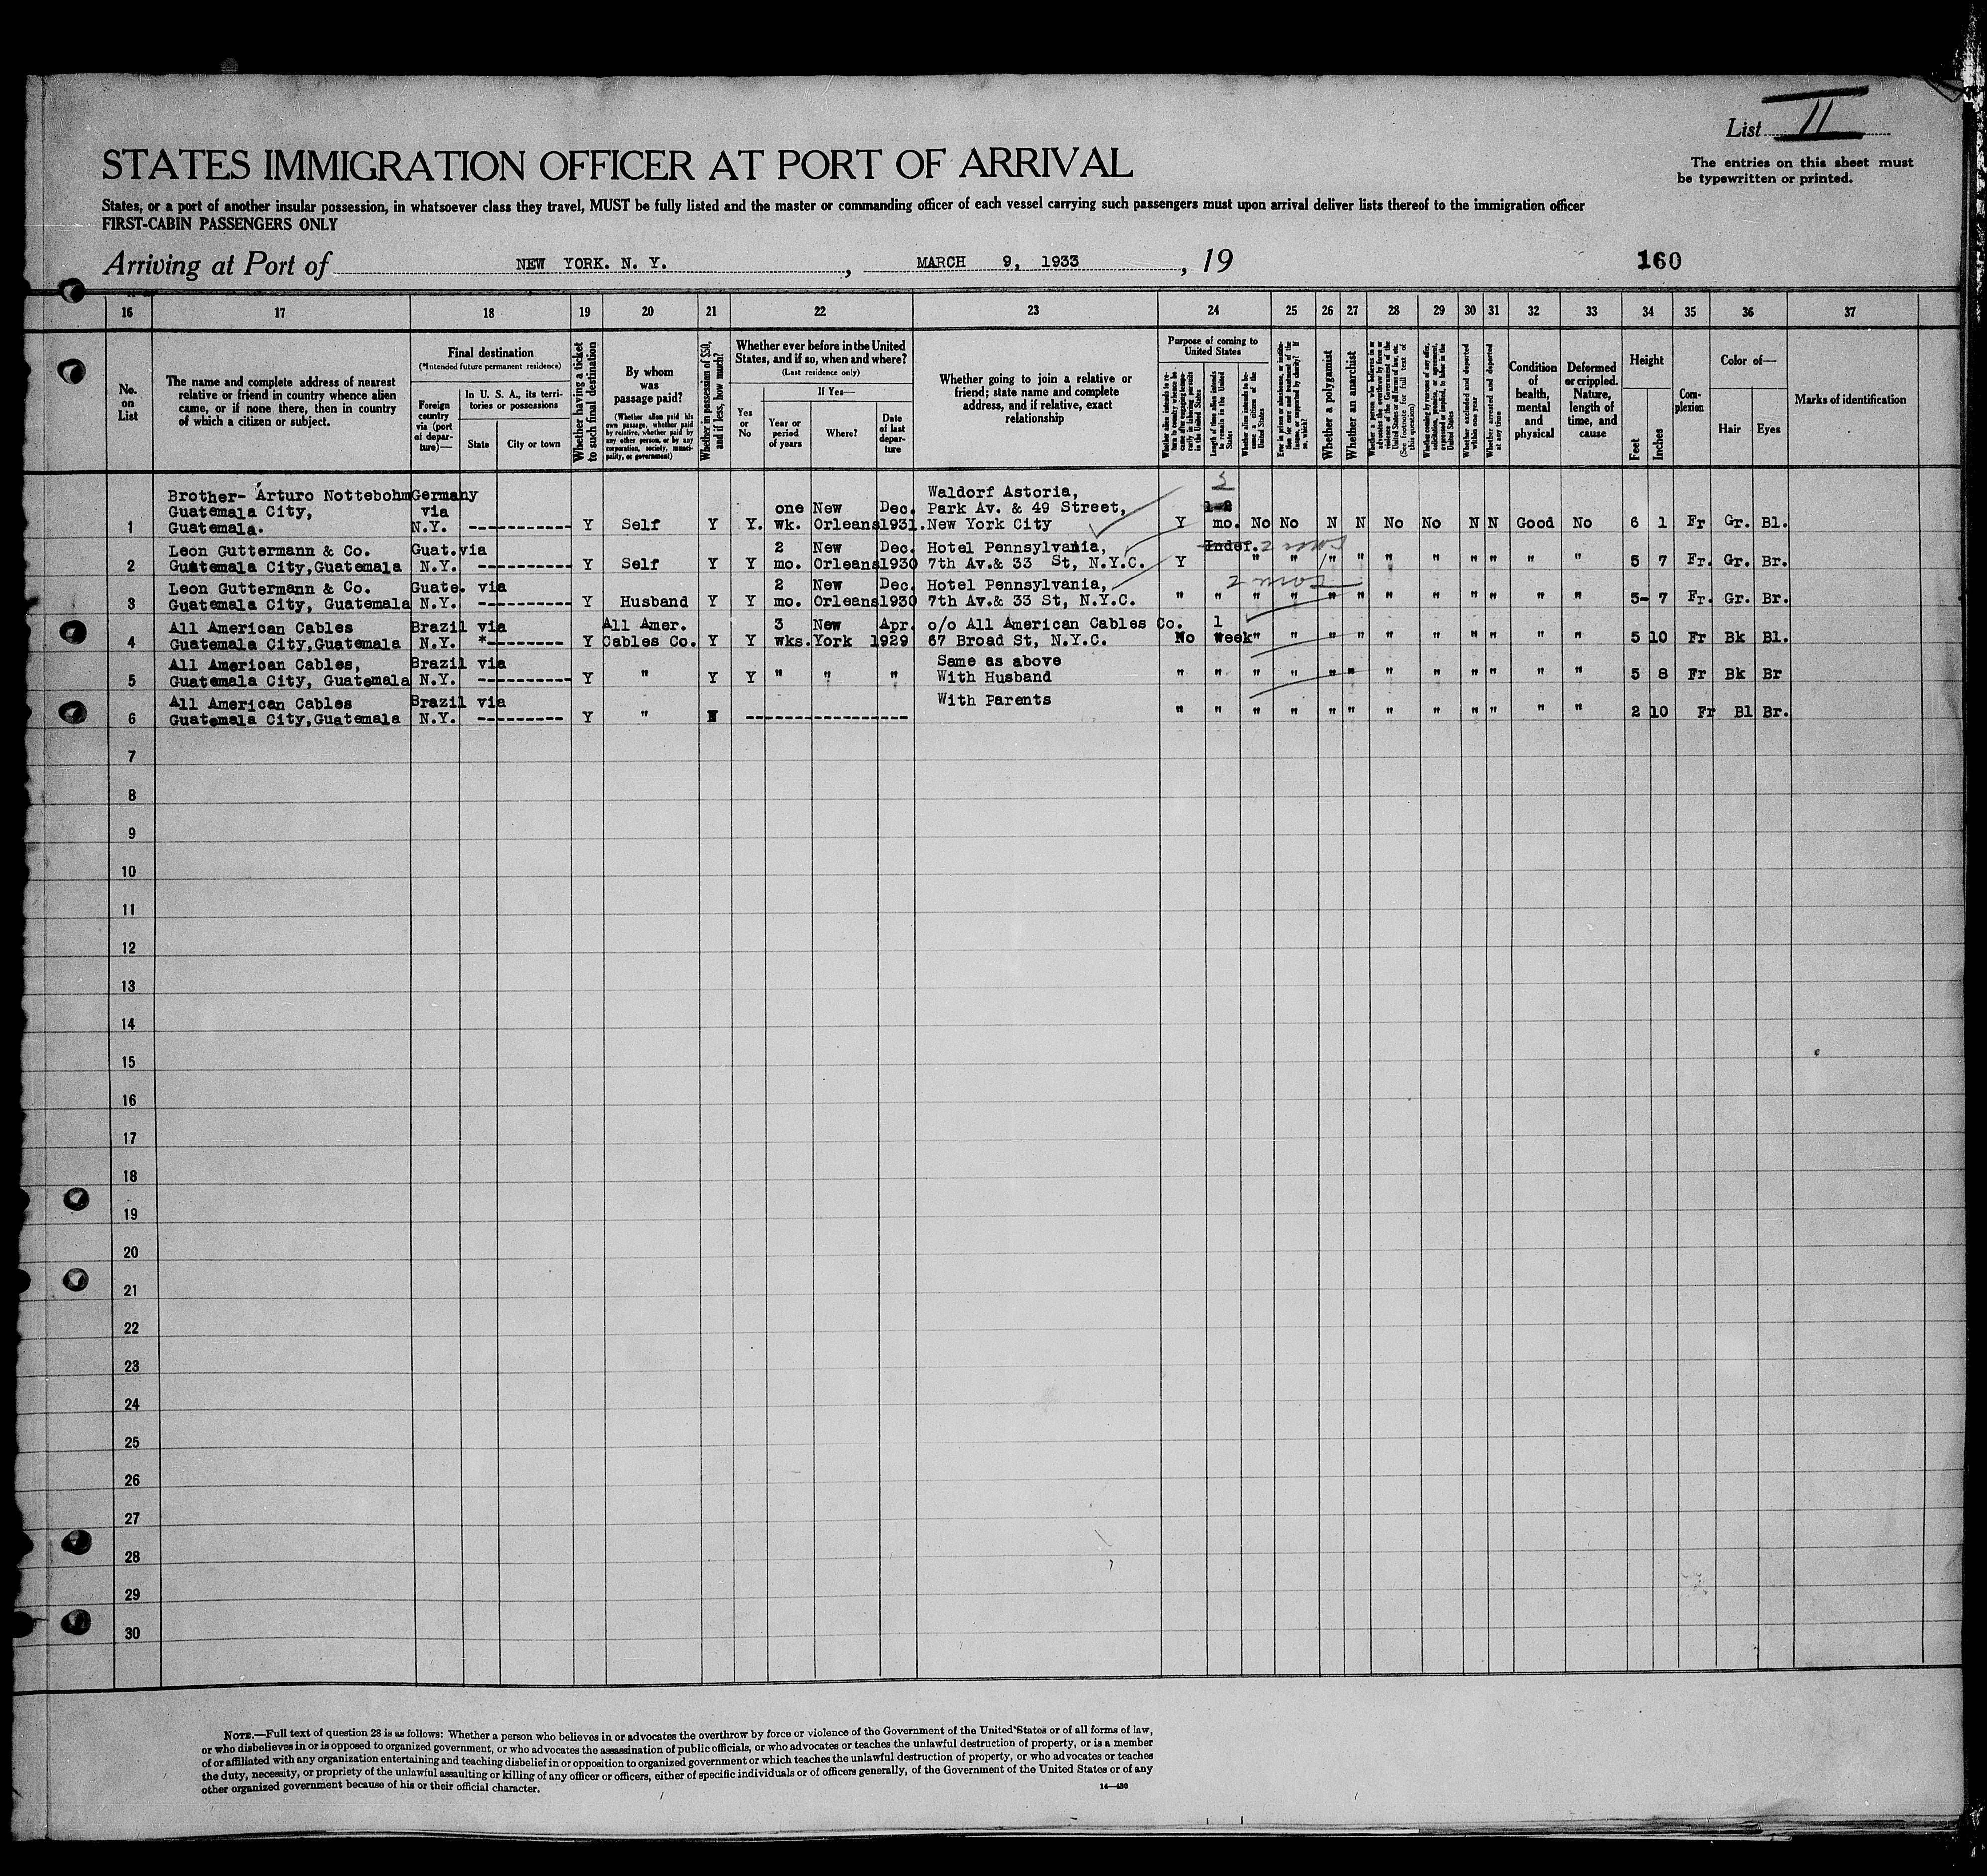 List II
The entries on this sheet must
be typewritten or printed.
STATES IMMIGRATION OFFICER AT PORT OF ARRIVAL
States, or a port of another insular possession, in whatsoever class they travel, MUST be fully listed and the master or commanding officer of each vessel carrying such passengers must upon arrival deliver lists thereof to the immigration officer
FIRST-CABIN PASSENGERS ONLY
Arriving at Port of NEW YORK. N. Y. , MARCH 9, 1933 , 19
160
16 17 18 19 20 21 22 23 24 25 26 27 28 29 30 31 32 33 34 35 36 37
No.
on
List
The name and complete address of nearest
relative or friend in country whence alien
came, or if none there, then in country
of which a citizen or subject.
Final destination
(*Intended future permanent residence)
Foreign
country
via (port
of depar-
ture)—
In U. S. A., its terri-
tories or possessions
State
City or town
Whether having a ticket
to such final destination
By whom
was
passage paid?
(Whether alien paid his
own passage, whether paid
by relative, whether paid by
any other person, or by any
corporation, society, munici-
pality, or government)
Whether in possession of $50,
and if less, how much?
Whether ever before in the United
States, and if so, when and where?
(Last residence only)
Yes
or
No
If Yes—
Year or
period
of years
Where?
Date
of last
depar-
ture
Whether going to join a relative or
friend; state name and complete
address, and if relative, exact
relationship
Purpose of coming to
United States
Whether alien intends to re-
turn to country whence he
came after engaging tempo-
rarily in laboring pursuits
in the United States
Length of time alien intends
to remain in the United
States
Whether alien intends to be-
come a citizen of the
United States
Ever in prison or almshouse, or institu-
tion for care and treatment of the
insane, or supported by charity? If
so, which?
Whether a polygamist
Whether an anarchist
Whether a person who believes in or
advocates the overthrow by force or
violence of the Government of the
United States or all forms of law, etc.
(See footnote for full text of
this question)
Whether coming by reason of any offer,
solicitation, promise, or agreement,
expressed or implied, to labor in the
United States
Whether excluded and deported
within one year
Whether arrested and deported
at any time
Condition
of
health,
mental
and
physical
Deformed
or crippled.
Nature,
length of
time, and
cause
Height
Feet
Inches
Com-
plexion
Color of—
Hair
Eyes
Marks of identification
Brother- Arturo Nottebohm Germany Waldorf Astoria, 3
Guatemala City, via one New Dec. Park Av. & 49 Street, 1-2
1 Guatemala. N.Y. ----------- Y Self Y Y. wk. Orleans 1931. New York City Y mo. No No N N No No N N Good No 6 1 Fr Gr. Bl.
Leon Guttermann & Co. Guat.via 2 New Dec. Hotel Pennsylvania, Indef.
2 Guatemala City,Guatemala N.Y. ---------- Y Self Y Y mo. Orleans 1930 7th Av.& 33 St, N.Y.C. Y " " " " " " " " " " 5 7 Fr. Gr. Br.
Leon Guttermann & Co. Guate. via 2 New Dec. Hotel Pennsylvania,
3 Guatemala City, Guatemala N.Y. ---------- Y Husband Y Y mo. Orleans 1930 7th Av.& 33 St, N.Y.C. " " " " " " " " " " " " 5- 7 Fr. Gr. Br.
All American Cables Brazil via All Amer. 3 New Apr. o/o All American Cables Co. 1
4 Guatemala City,Guatemala N.Y. *--------- Y Cables Co. Y Y wks. York 1929 67 Broad St, N.Y.C. No week " " " " " " " " " " 5 10 Fr Bk Bl.
All American Cables, Brazil via Same as above
5 Guatemala City, Guatemala N.Y. ---------- Y " Y Y " " " With Husband " " " " " " " " " " " " 5 8 Fr Bk Br
All American Cables Brazil via With Parents
6 Guatemala City,Guatemala N.Y. --------- Y " N ----------------- " " " " " " " " " " " " 2 10 Fr Bl Br.
7
8
9
10
11
12
13
14
15
16
17
18
19
20
21
22
23
24
25
26
27
28
29
30
NOTE.—Full text of question 28 is as follows: Whether a person who believes in or advocates the overthrow by force or violence of the Government of the United States or of all forms of law,
or who disbelieves in or is opposed to organized government, or who advocates the assassination of public officials, or who advocates or teaches the unlawful destruction of property, or is a member
of or affiliated with any organization entertaining and teaching disbelief in or opposition to organized government or which teaches the unlawful destruction of property, or who advocates or teaches
the duty, necessity, or propriety of the unlawful assaulting or killing of any officer or officers, either of specific individuals or of officers generally, of the Government of the United States or of any
other organized government because of his or their official character.
14—430